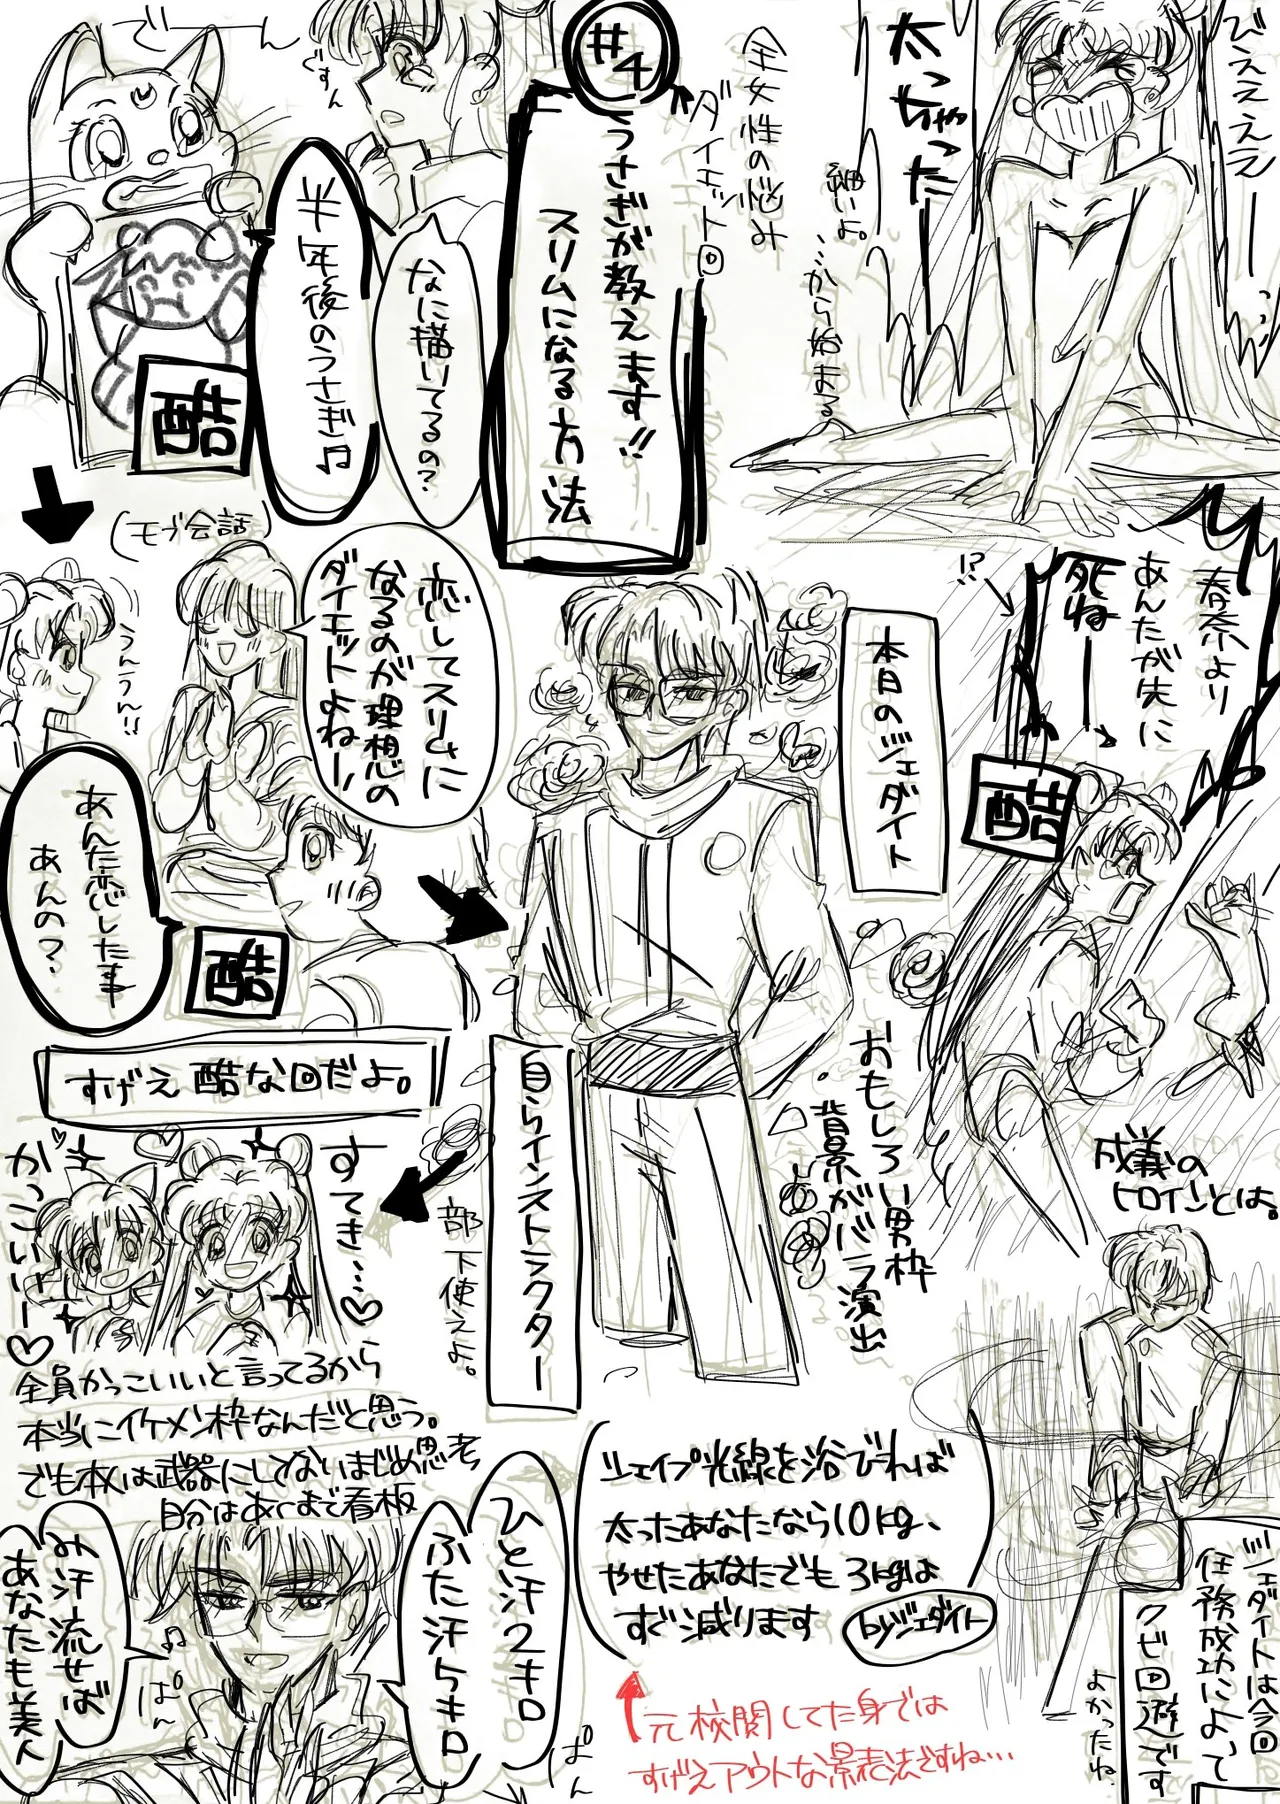 びえええええーっっ
太っちゃったーー
細いよ。
…から始まる
全女性の悩み
ダイエット回
#4
うさぎが教えます!!
スリムになる方法
ですん
でーん
なに描いてるの?
半年後のうさぎ♫
酷
(モブ会話)
恋してスリムに
なるのが理想の
ダイエットよねー
うんうん!!
あんた恋した事
あんの?
酷
すげえ 酷な回だよ。
春奈より
あんたが先に
死ねーー
!?
酷
成義の
ヒロインとは。
本日のジェダイト
おもしろい男枠
背景がバラ演出
自らインストラクター
部下使えよ。
すてき…♡
かっこいいー♡
全員かっこいいと言ってるから
本当にイケメン枠なんだと思う。
でも本人は武器にしてないまじめ思考
自分はあくまで看板
ひと汗2キロ
ふた汗5キロ
ぱん
み汗流せば
あなたも美人
ぱん
シェイプ光線を浴びれば
太ったあなたなら10kg、
やせたあなたでも3kgは
すぐ減ります
byジェダイト
元校閲してた身では
すげえアウトな景表法ですね…
ジェダイトは今回
任務成功によって
クビ回避です
よかったね